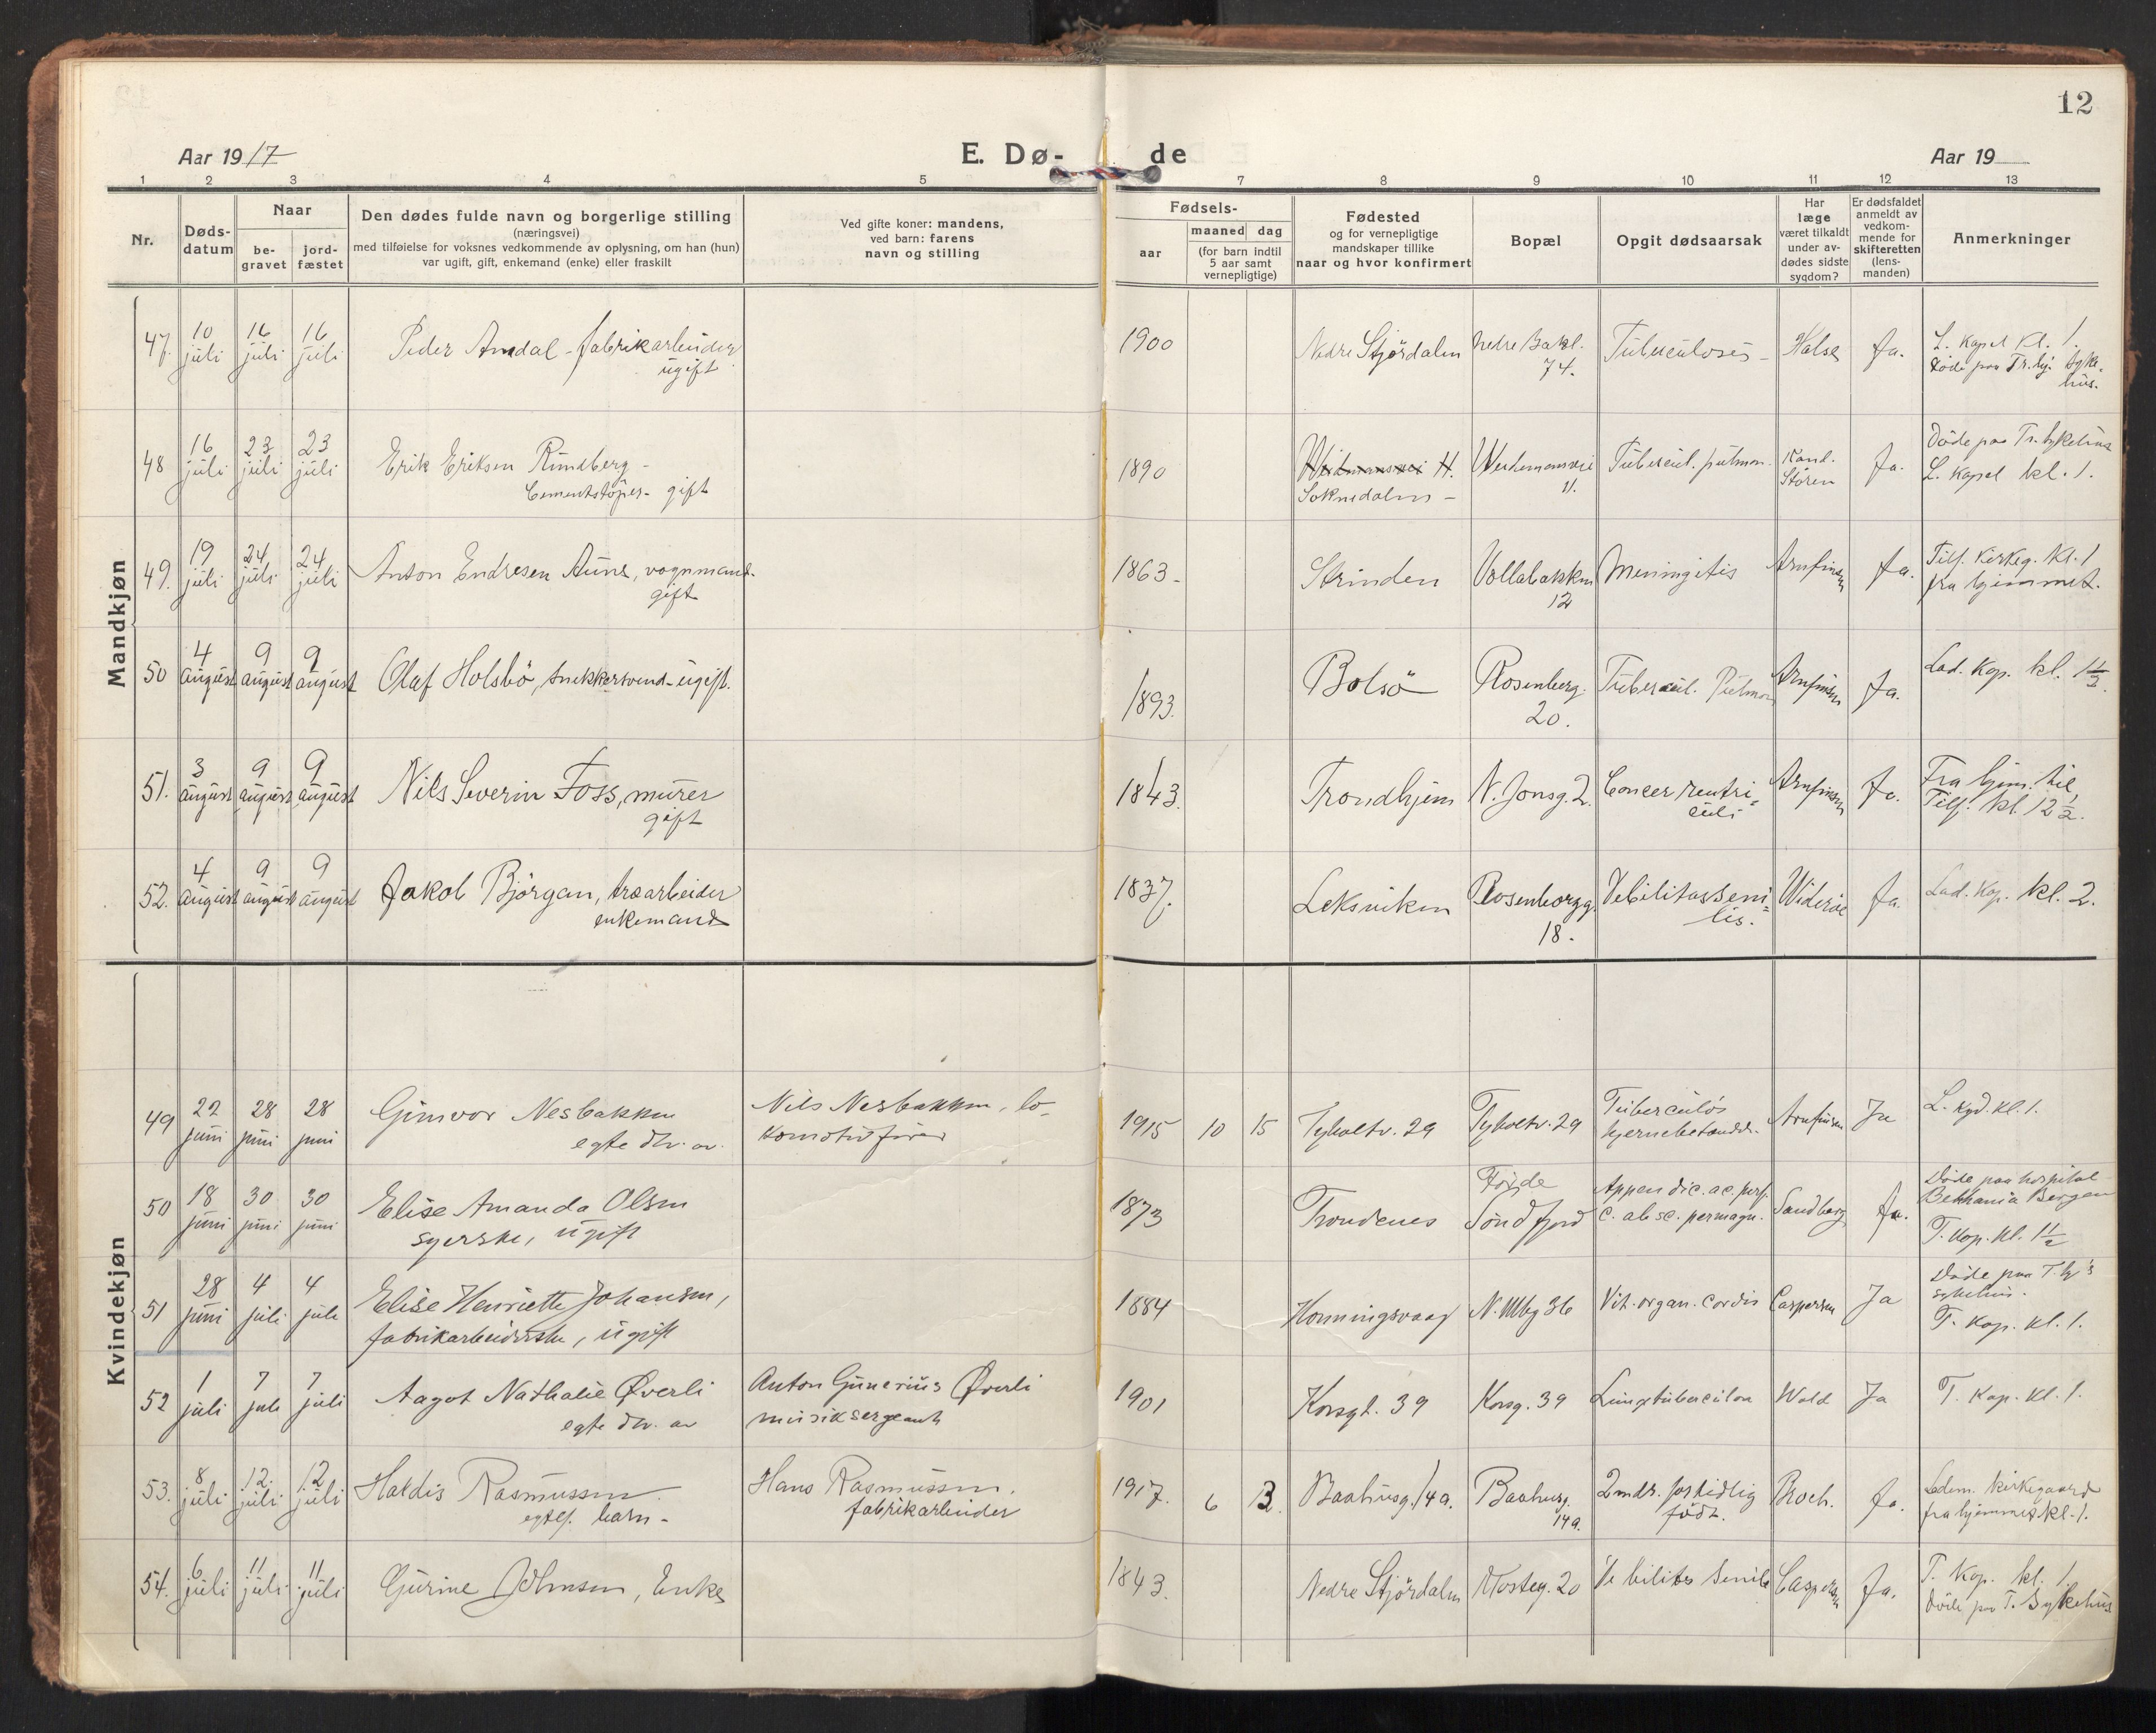 12
Aar 1917
E. Dø- de
Aar 19
1 2 3 4 5 7 8 9 10 11 12 13
Nr.
Døds-
datum
Naar
be-
gravet
jord-
fæstet
Den dødes fulde navn og borgerlige stilling
(næringsvei)
med tilføielse for voksnes vedkommende av oplysning, om han (hun)
var ugift, gift, enkemand (enke) eller fraskilt
Ved gifte koner: mandens,
ved barn: farens
navn og stilling
Fødsels-
aar
maaned dag
(for barn indtil
5 aar samt
vernepligtige)
Fødested
og for vernepligtige
mandskaper tillike
naar og hvor konfirmert
Bopæl
Opgit dødsaarsak
Har
læge
været tilkaldt
under av-
dødes sidste
sygdom?
Er dødsfaldet
anmeldt av
vedkom-
mende for
skifteretten
(lens-
manden)
Anmerkninger
Mandkjøn
47. 10 juli 16 juli 16 juli Peder Amdal - fabrikarbeider 1900 Nedre Stjørdalen Nedre Bakl. Tuberculosis - Halse Ja. L. Kapel kl. 1.
ugift 74. Døde paa Tr.hj. syke-
hus.
48 16 juli 23 juli 23 juli Erik Eriksen Rundberg - 1890 H. Weidemansvei Tubercul. pulmon. Kand. Støren Ja. Døde paa Tr. sykehus
Cementstøper - gift Soknedalen - 11. L. Kapel kl. 1.
49. 19 juli 24 juli 24 juli Anton Endresen Aune, vognmand - 1863 - Strinden Vollabakken Meningitis Arnfinsen Ja. Tilf. Kirkeg. kl. 1
gift 12 fra hjemmet.
50 4 august 9 august 9 august Olaf Holsbö, snekkersvend - ugift. 1893. Bolsö Rosenberg. Tubercul. Pulmon Arnfinsen Ja. Lad. Kap. kl. 1 1/2.
20.
51. 3 august 9 august 9 august Nils Severin Foss, murer 1843. Trondhjem N. Jonsg. 2. Cancer ventri- Arnfinsen Ja. Fra hjem. til
gift culi Tilf. kl. 12 1/2.
52. 4 august 9 august 9 august Jakob Björgan, træarbeider 1837. Leksviken Rosenborgg. Debilitas seni- Wideröe Ja. Lad. Kap. kl. 2.
enkemand 18. lis.
Kvindekjøn
49 22 juni 28 juni 28 juni Gunvor Nesbakken Nils Nesbakken, lo- 1915 10 15 Tyholtv. 29 Tyholtv. 29 Tuberculös Arnfinsen Ja L. kl. 1.
egte dtr. av komotivfører hjernebetændels.
50 18 juni 30 juni 30 juni Elise Amanda Olsen 1873 Trondenes Førde Appendic. ac. perf. Sandberg Ja. Døde paa hospital
syerske, ugift Söndfjord c. absc. permagn. Bethania Bergen
T. Kap. kl. 1 1/2
51 28 juni 4 juli 4 juli Elise Henriette Johansen, 1884 Honningsvaag N. Mbg 36 Vit. organ. cordis Caspersen Ja Døde paa T.hj's
fabrikarbeiderske, ugift sykehus.
T. Kap. kl. 1.
52 1 juli 7 juli 7 juli Aagot Nathalie Øverli Anton Gunerius Øverli 1901 Korsgt. 39 Korsg. 39 Lungetuberculose Wold Ja T. Kap. kl. 1.
egte dtr. av musiksergeant
53. 8 juli 12 juli 12 juli Haldis Rasmussen. Hans Rasmussen. 1917. 6 13. Baahusg. 14 a. Baahusg. 2 mdr. fortidlig Broch. Ja. Ladem. kirkegaard
egtef. barn - fabrikarbeider 14 a. født. fra hjemmet kl. 1.
54. 6 juli 11 juli 11 juli Gurine Johnsen, Enke 1843. Nedre Stjørdalen Mosteg. 20 Debilitas senilis Caspersen Ja. T. Kap. kl. 1.
Døde paa T. Sykehus